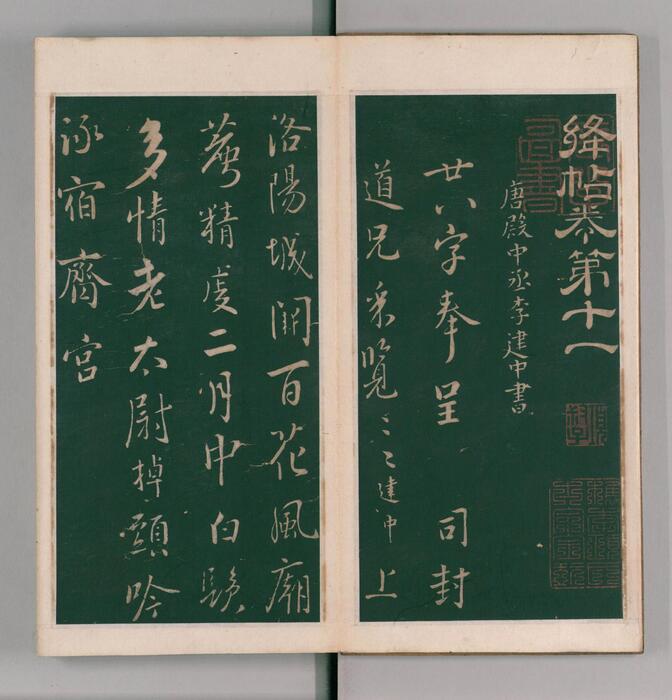 絳帖卷第十一
唐殿中丞李建中書
廿八字奉呈 司封
道兄采覽〻〻建中上
洛陽城闕百花風廟
薦精虔二月中白鬚
多情老太尉掉頭吟
詠宿齋宮